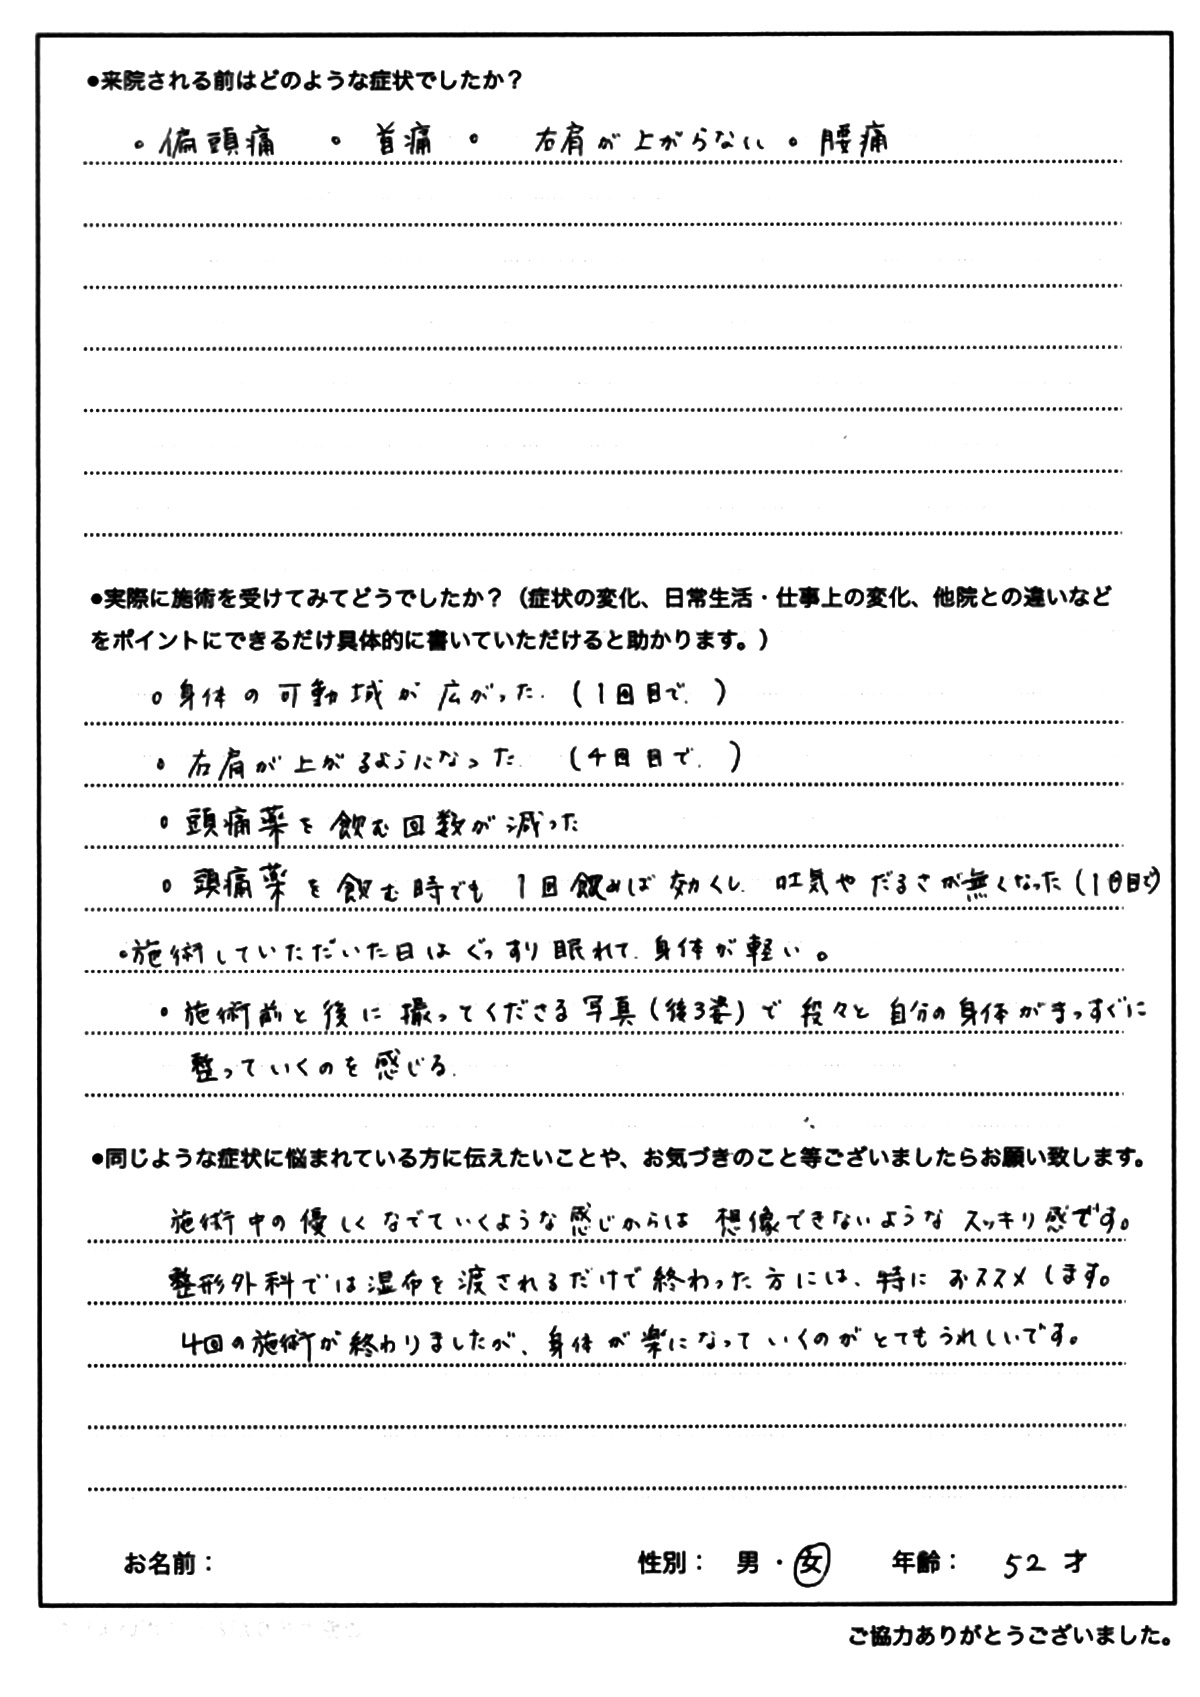 ●来院される前はどのような症状でしたか？
。偏頭痛 。首痛 。 右肩が上がらない 。腰痛
●実際に施術を受けてみてどうでしたか？（症状の変化、日常生活・仕事上の変化、他院との違いなど
をポイントにできるだけ具体的に書いていただけると助かります。）
。身体の可動域が広がった.（1回目で.）
。右肩が上がるようになった.（4回目で.）
。頭痛薬を飲む回数が減った
。頭痛薬を飲む時でも 1回飲めば効くし. 吐気やだるさが無くなった（1回目で）
・施術していただいた日はぐっすり眠れて. 身体が軽い。
・施術前と後に撮ってくださる写真（後ろ姿）で段々と自分の身体がまっすぐに
整っていくのを感じる.
●同じような症状に悩まれている方に伝えたいことや、お気づきのこと等ございましたらお願い致します。
施術中の優しくなでていくような感じからは想像できないようなスッキリ感です。
整形外科では湿布を渡されるだけで終わった方には、特におススメします。
4回の施術が終わりましたが、身体が楽になっていくのがとてもうれしいです。
お名前： 性別： 男 ・ 女 年齢： 52 才
ご協力ありがとうございました。